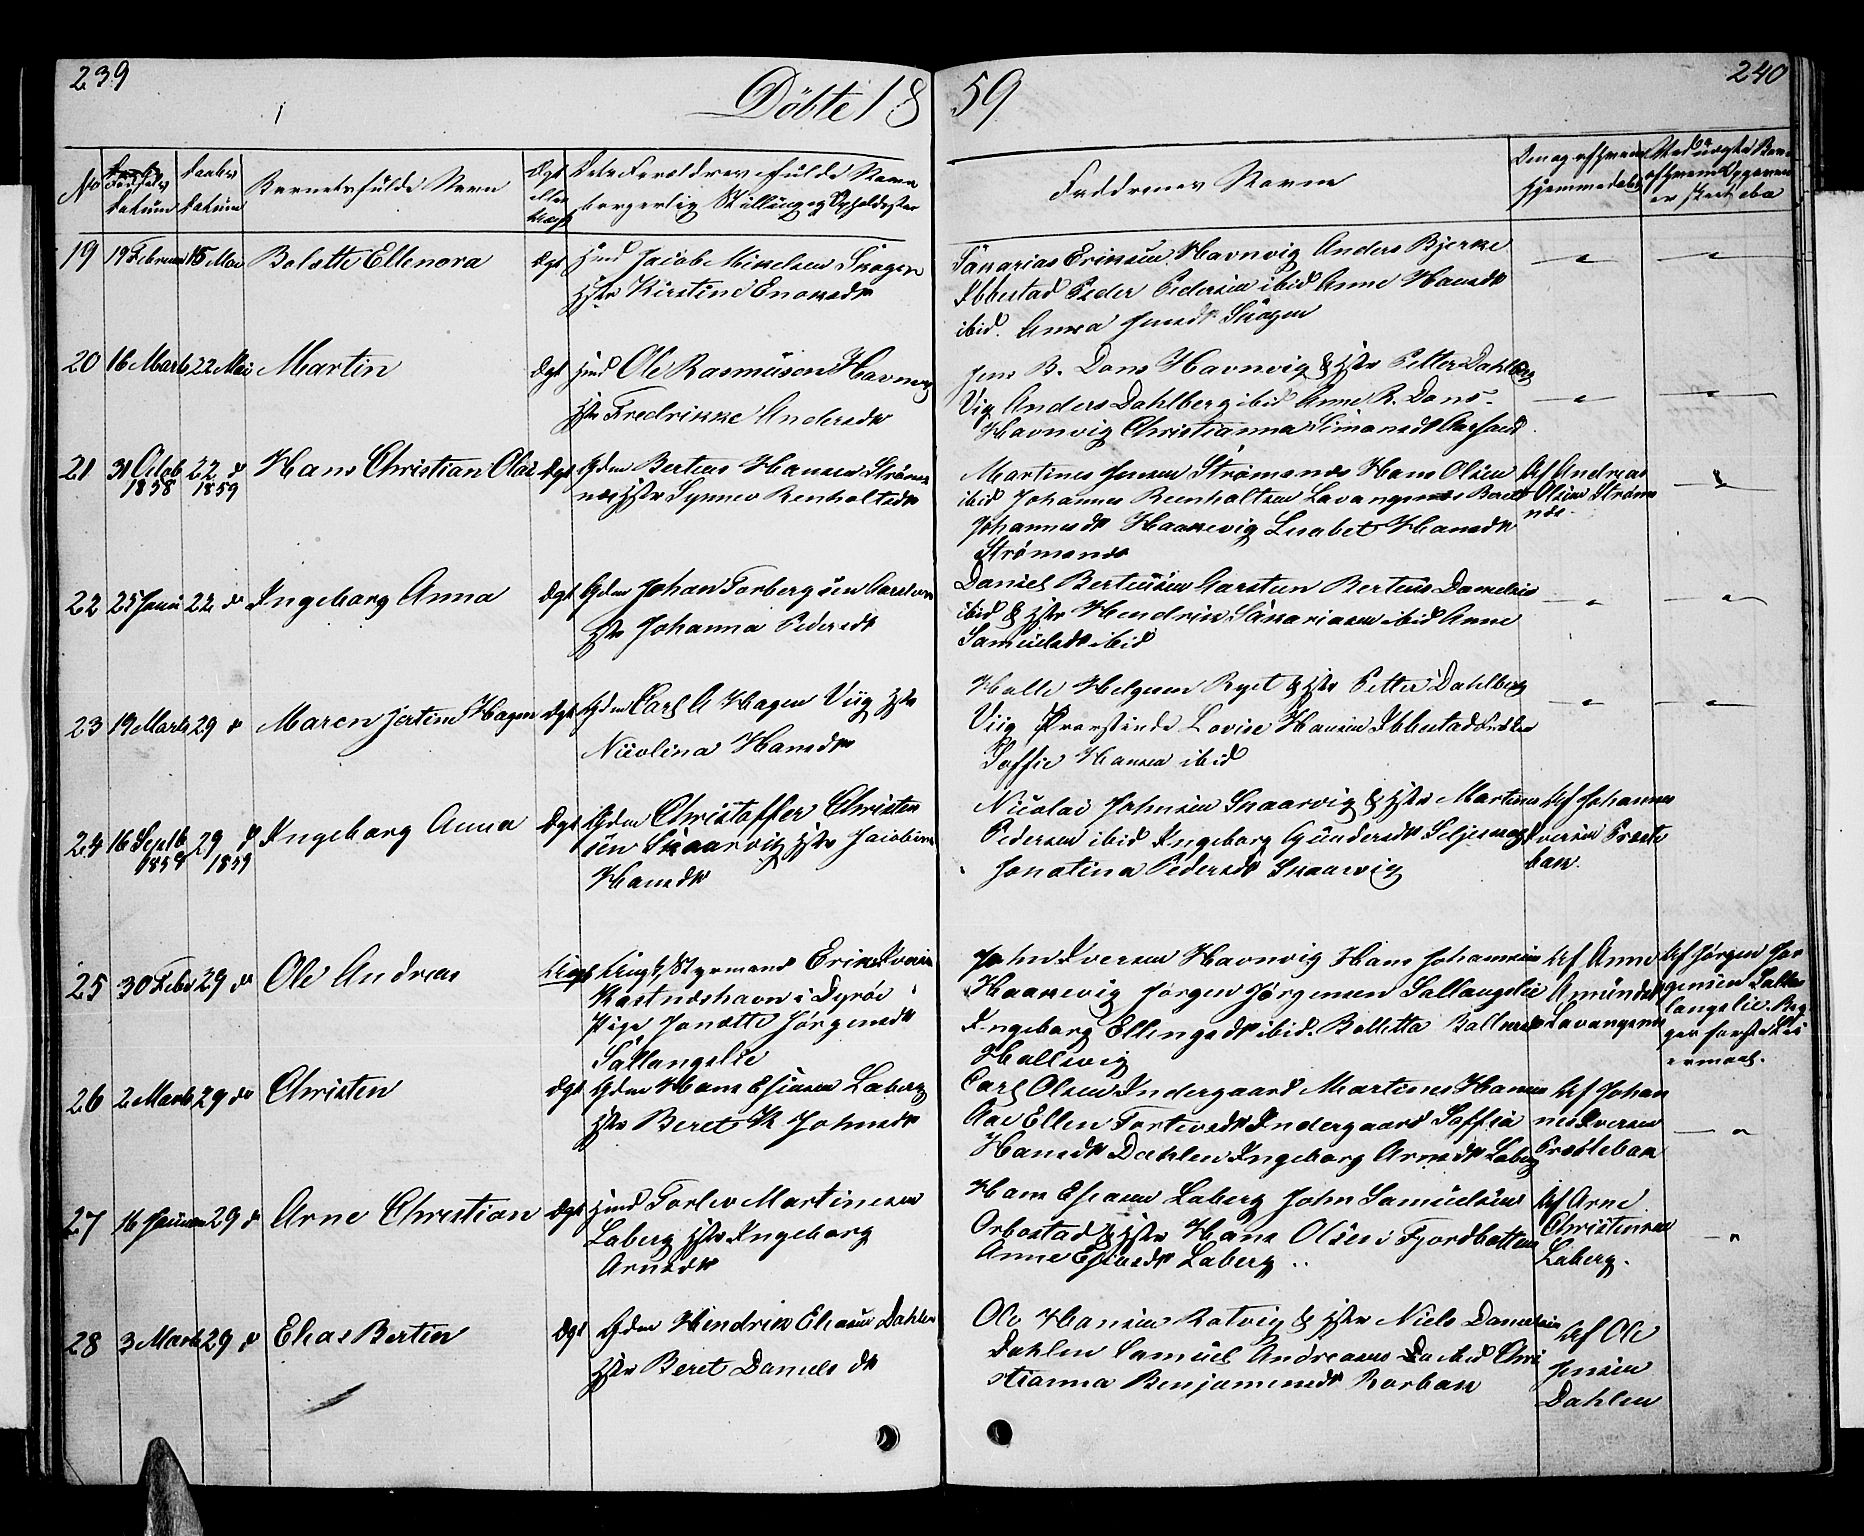 239
240
Döbte 18 59
No
Fødsels datum
Daabs datum
Barnets fulde Navn
Ægt eller Uægt
Forældres fulde Navn borgerlig Stilling og Opholdsted
Faddernes Navne
19 19 Februar 15 Mai Bolette Ellenora Ægt Jnd Jacob Mikelsen Skogen
Hstr Kirstine Enoksdtr
Sakarias Eriksen Havnvig Anders Bjerke
Ibbestad Peder Pedersen ibid Anne Hansdtr
ibid. Anna Jensdtr Skogen
20 16 Marts 22 Mai Martin Ægt Jnd Ole Rasmusen Havnvig
Hstr Fredrikke Andersdtr
Jens B. Dons Havnvig & Hstr Petter Dahlberg
Vig Anders Dahlberg ibid Anne R. Dons
Havnvig Christianna Simonsdtr
21 31 Octob 1858 22 do 1859 Hans Christian Olai Ægt Gdm Berteus Hansen Strømsnes Hstr Synnev Renholtsdtr
Martines Jensen Strømsnes Hans Olsen
ibid Johannes Renholtsen Lavangsnes Beret
Johannesdtr Haakevig Lisabet Hansdtr
Strømsnes
Af Andreas
Olsen Strømsnes.
22 25 Janu 22 do Ingeborg Anna Ægt Gdm Johan Torbergsen Carsteen
Hstr Johanna Pedersdtr
Daniel Berteusen Carsteen Berteus Danielsen
ibid & Hstr Hendrik Sakariasen ibid Anne
Samuelsdtr ibid
23 19 Marts 29 do Maren Jertine Hagen Ægt Gdm Carl A Hagen Viig Hstr
Nicolina Hansdtr
Halle Helgesen Ryet & Hstr Petter Dahlberg
Viig Provstinde Lovise Hansen Ibbestad
Soffie Hansen ibid
24 16 Septb 1858 29 do 1859 Ingeborg Anna Ægt Gdm Christoffer Christensen Skaarvig Hstr Jacobine
Hansdtr
Nicolai Johnsen Skaarvig & Hstr Martines
Pedersen ibid Ingeborg Gundersdtr
Jonatina Pedersdtr Skaarvig
Af Johannes
Iversen Prestebak.
25 30 Febr 29 do Ole Andreas Uægt Ungk. Styrmand Erik Iversen
Kastneshavn i Dyrøe
Pige Janette Jørgensdtr
Sallangslie
John Iversen Havnvig Hans Johannesen
Haakevig Jørgen Jørgensen Sallangslie
Ingeborg Ellingsdtr ibid. Bolletta
Hallevig
Af Anne
Amundsdtr
Lavangsnes
Af Jørgen Jørgensen Sallangslie.
26 2 Marts 29 do Christen Ægt Gdm Hans Esiasen Laberg
Hstr Beret K Johnsdtr
Carl Olsen Indergaard Martines Hansen
Aae Ellen Torlevsdtr Indergaard Soffia
Hansdtr Dahlen Ingeborg Arnesdtr Laberg
Af Johannes Iversen
Prestebak
27 16 Januar 29 do Arne Christian Ægt Jnd Torlev Martinesen
Laberg Hstr Ingeborg
Arnesdtr
Hans Esiasen Laberg John Samuelsen
Orbostad & Hstr Hans Olsen i Fjordbotten
Anne Esiasdtr Laberg
Af Arne
Christensen
Laberg.
28 3 Marts 29 do Elias Bertin Ægt Gdm Hendrik Eliasen Dahlen
Hstr Beret Danielsdtr
Ole Hansen Rotvig & Hstr Niels Danielsen
Dahlen Samuel Andreasen ibid Christianna Benjaminsdtr Rorbak
Af Ole
Jensen
Dahlen